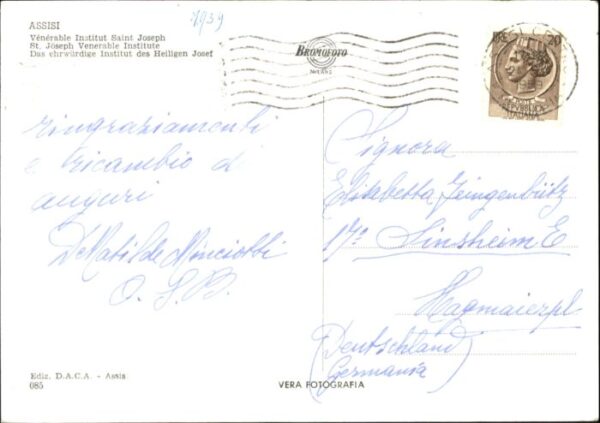 7939
ASSISI
Vénérable Institut Saint Joseph
St. Joseph Venerable Institute
Das ehrwürdige Institut des Heiligen Josef
BROMOFOTO
MILANO
20
REPUBBLICA
ITALIANA
ringraziamenti
e ricambio di
auguri
D. Matilde Monciotti
O. S. B.
Signora
Elisabetta Zeingenbütz
17a Sinsheim E
Hagmaierpl
(Deutschland)
Germania
Ediz. D.A.C.A. - Assis
085
VERA FOTOGRAFIA